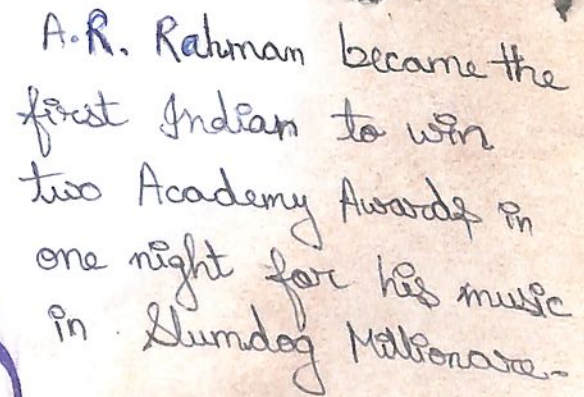 A.R. Rahman became the
first Indian to win
two Academy Awards in
one night for his music
in Slumdog Millionare.